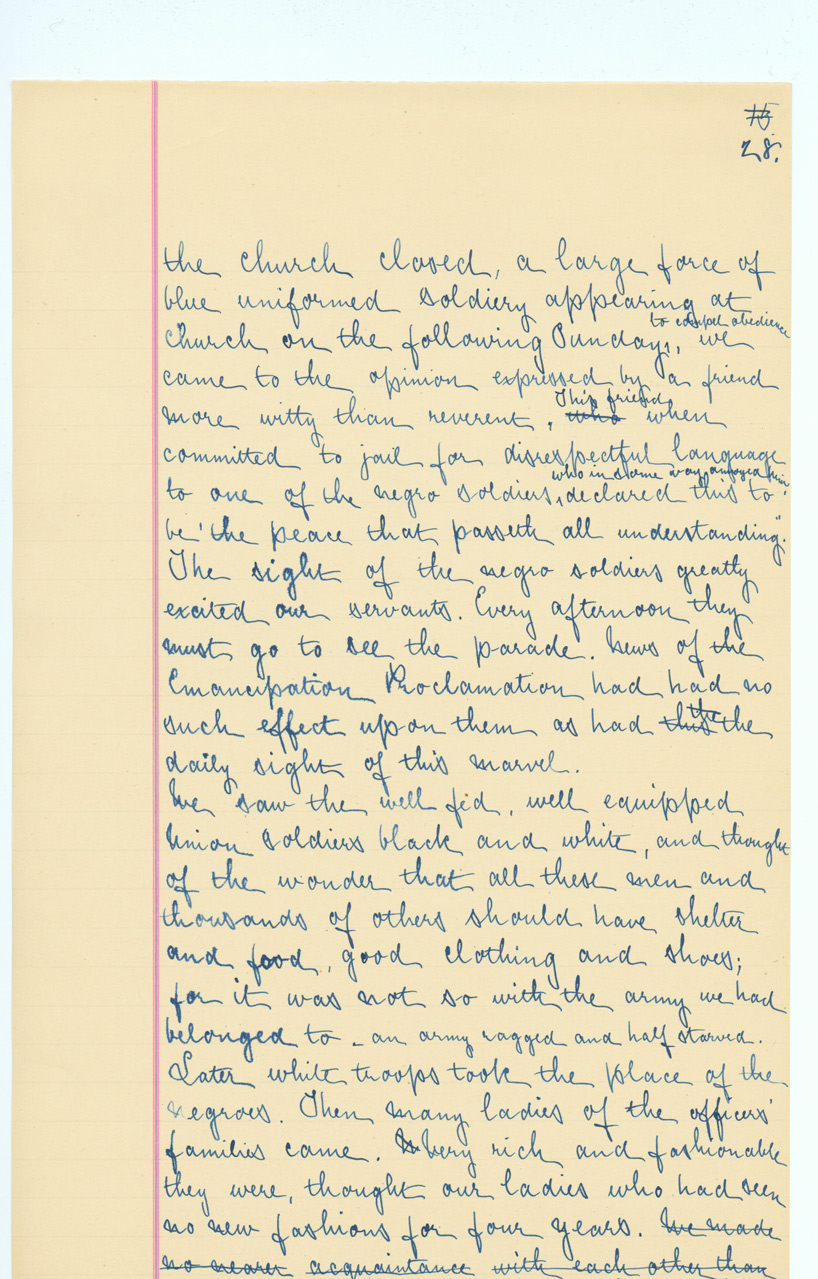 15
28.
the church closed, a large force of
blue uniformed soldiery appearing at
to compel obedience
church on the following Sunday, we
came to the opinion expressed by a friend
This friend
more witty than reverent, who when
committed to jail for disrespectful language
who in some way annoyed him
to one of the negro soldiers, declared this to
be "the peace that passeth all understanding".
The sight of the negro soldiers greatly
excited our servants. Every afternoon they
must go to see the parade. News of the
Emancipation Proclamation had had no
the
such effect upon them as had this the
daily sight of this marvel.
We saw the well fed, well equipped
Union soldiers black and white, and thought
of the wonder that all these men and
thousands of others should have shelter
and food, good clothing and shoes;
for it was not so with the army we had
belonged to - an army ragged and half starved.
Later white troops took the place of the
negroes. Then many ladies of the officers'
families came. Very rich and fashionable
they were, thought our ladies who had seen
no new fashions for four years. We made
no nearer acquaintance with each other than